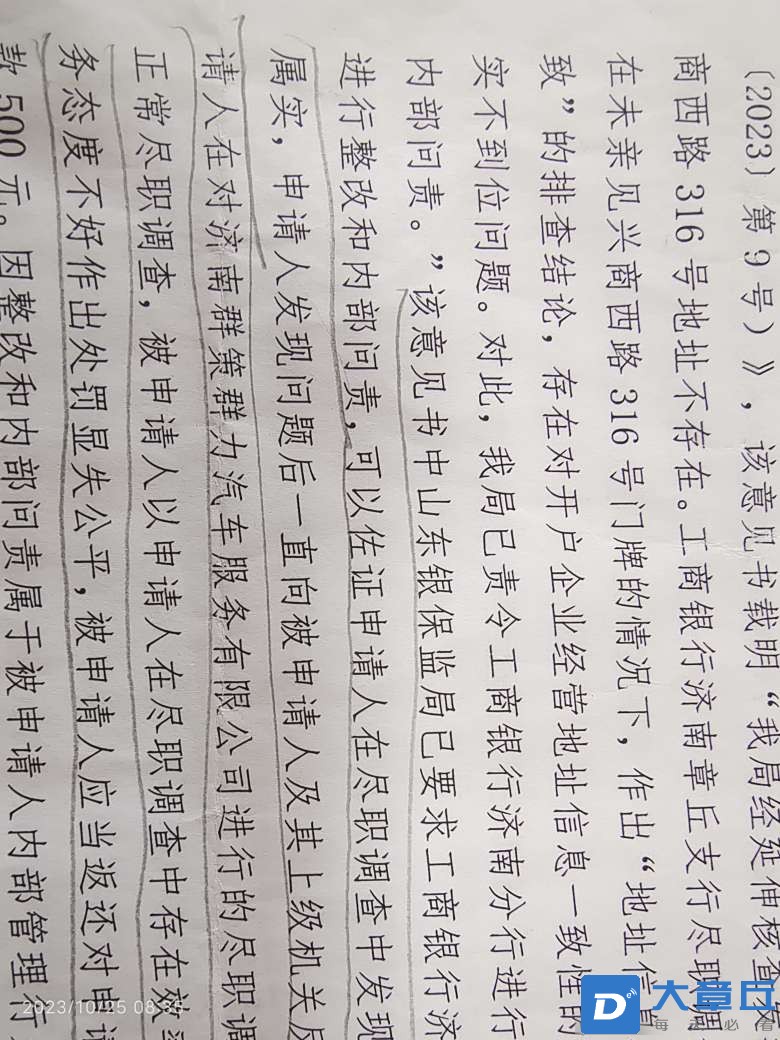 〔2023〕第9号）》，该意见书载明“我局经延伸核查发
商西路316号地址不存在。工商银行济南章丘支行尽职调
在未亲见兴商西路316号门牌的情况下，作出“地址信息
致”的排查结论，存在对开户企业经营地址信息一致性的
实不到位问题。对此，我局已责令工商银行济南分行进行
内部问责。”该意见书中山东银保监局已要求工商银行济
进行整改和内部问责，可以佐证申请人在尽职调查中发现
属实，申请人发现问题后一直向被申请人及其上级机关反
请人在对济南群策群力汽车服务有限公司进行的尽职调
正常尽职调查，被申请人以申请人在尽职调查中存在效率
务态度不好作出处罚显失公平，被申请人应当返还对申请
款500元。因整改和内部问责属于被申请人内部管理行
2023/10/25 08:35
D
大章丘
每 必看